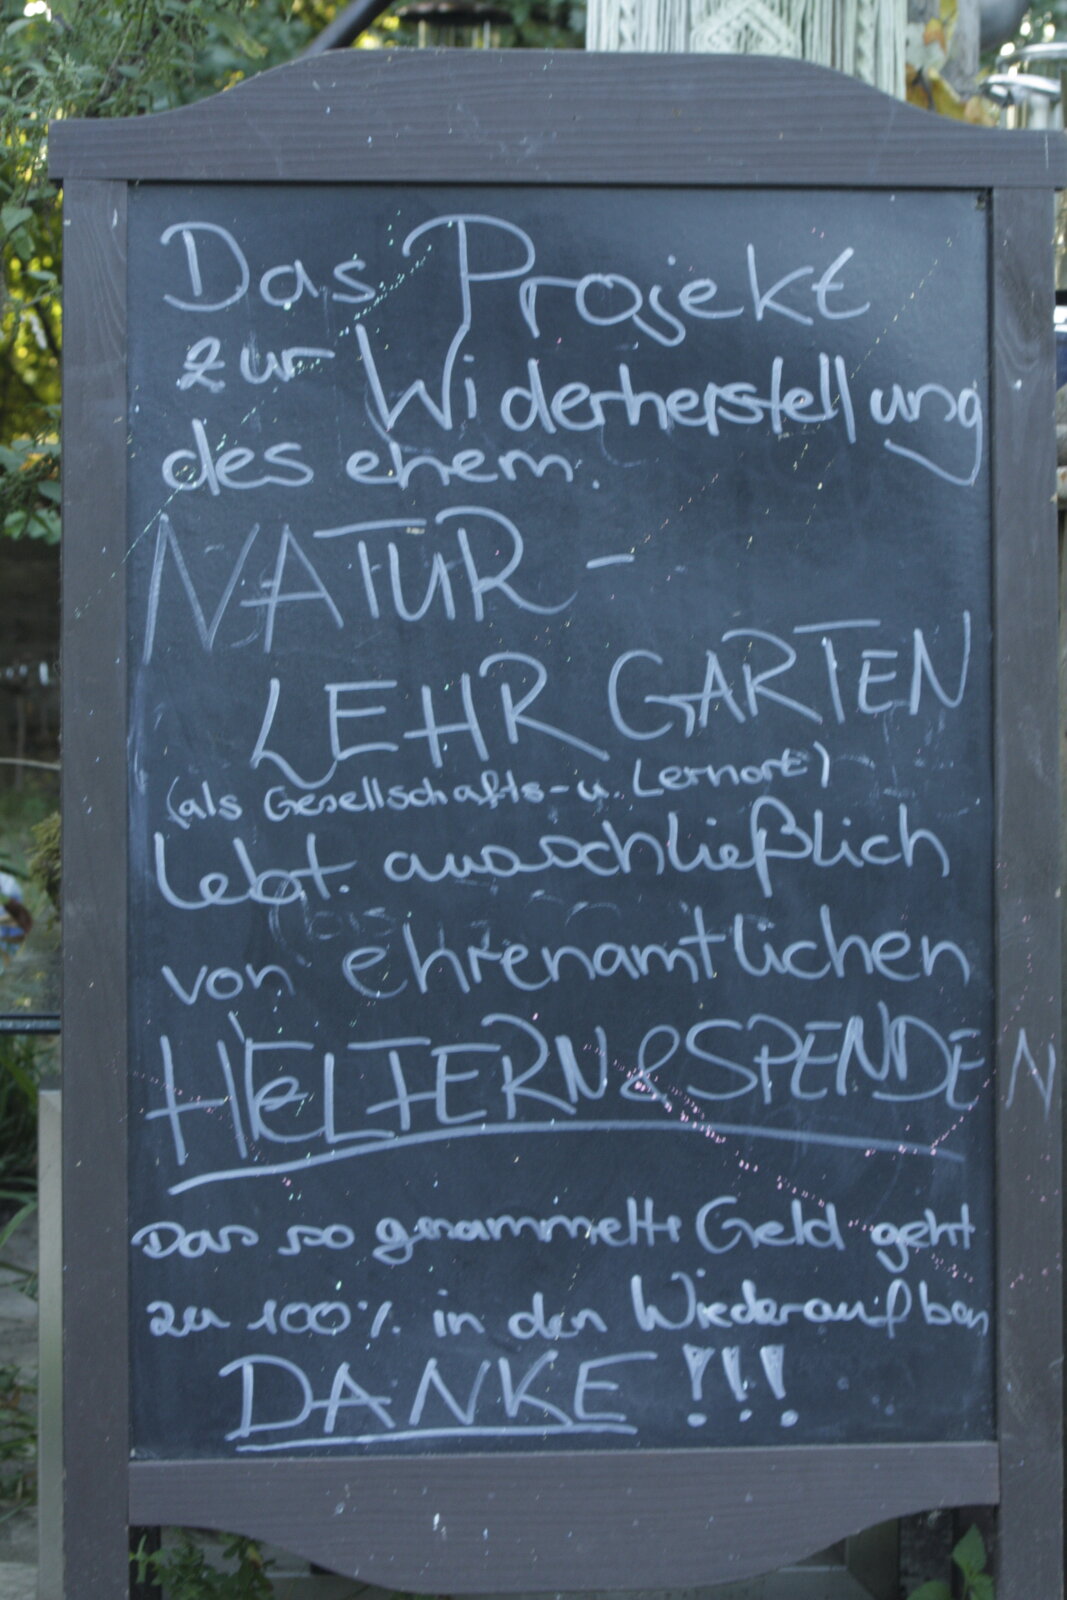 Das Projekt
zur Widerherstellung
des ehem.
NATUR -
LEHR GARTEN
(als Gesellschafts-u. Lernort)
lebt. ausschließlich
von ehrenamtlichen
HELFERN & SPENDEN
Das so gesammelte Geld geht
zu 100% in den Wiederaufbau
DANKE !!!